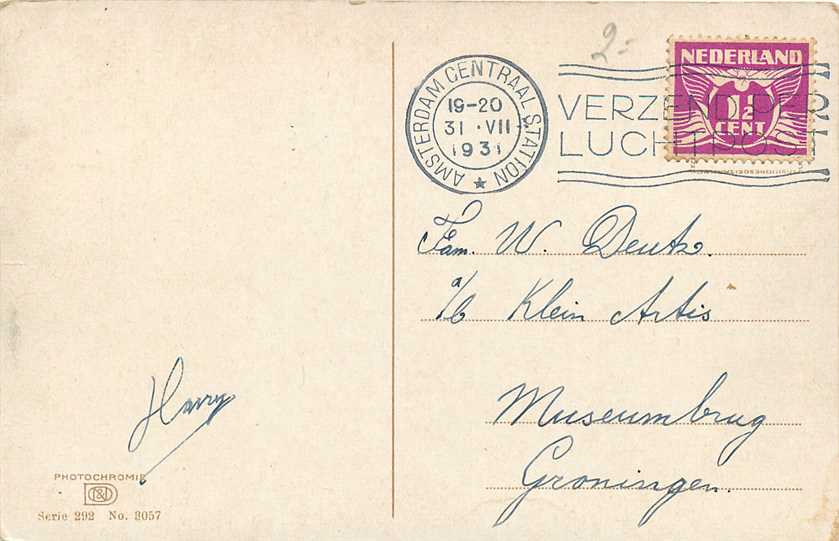 2-
NEDERLAND
1½
CENT
AMSTERDAM CENTRAAL STATION
19-20
31 · VII
1931
VERZEND PER
LUCHTPOST
Fam. W. Deutz.
a/b Klein Artis
Museumbrug
Groningen.
Harry
PHOTOCHROMIE
Serie 292 No. 3057